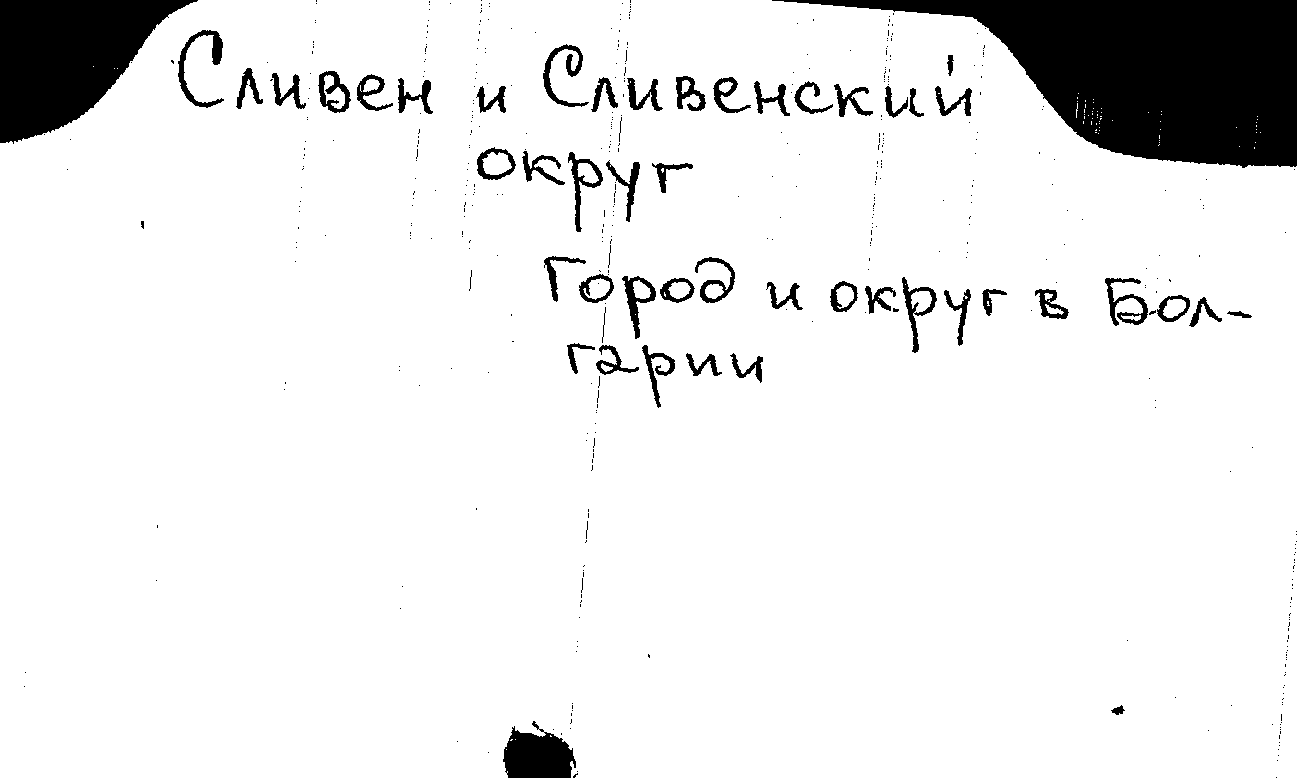 Сливен и Сливенский
округ
Город и округ в Бол-
гарии